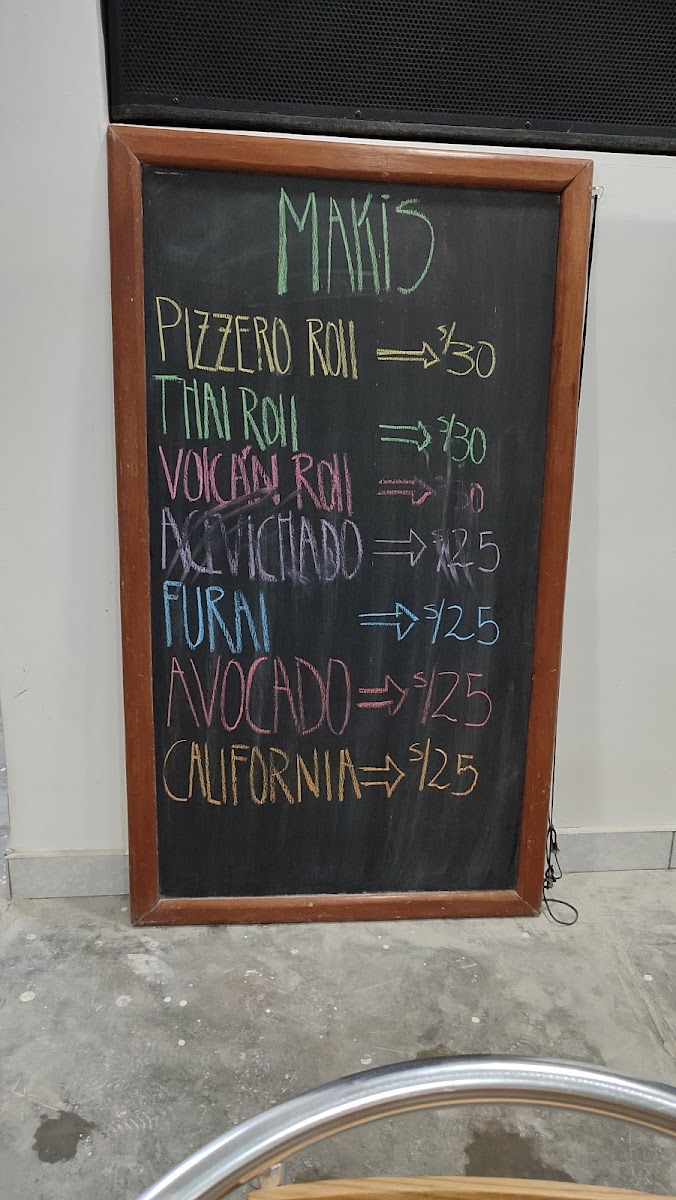 MAKIS
PIZZERO ROll → S/30
THAI ROll → S/30
VOLCÁN ROll → S/30
ACEVICHADO → S/25
FURAI → S/25
AVOCADO → S/25
CALIFORNIA → S/25